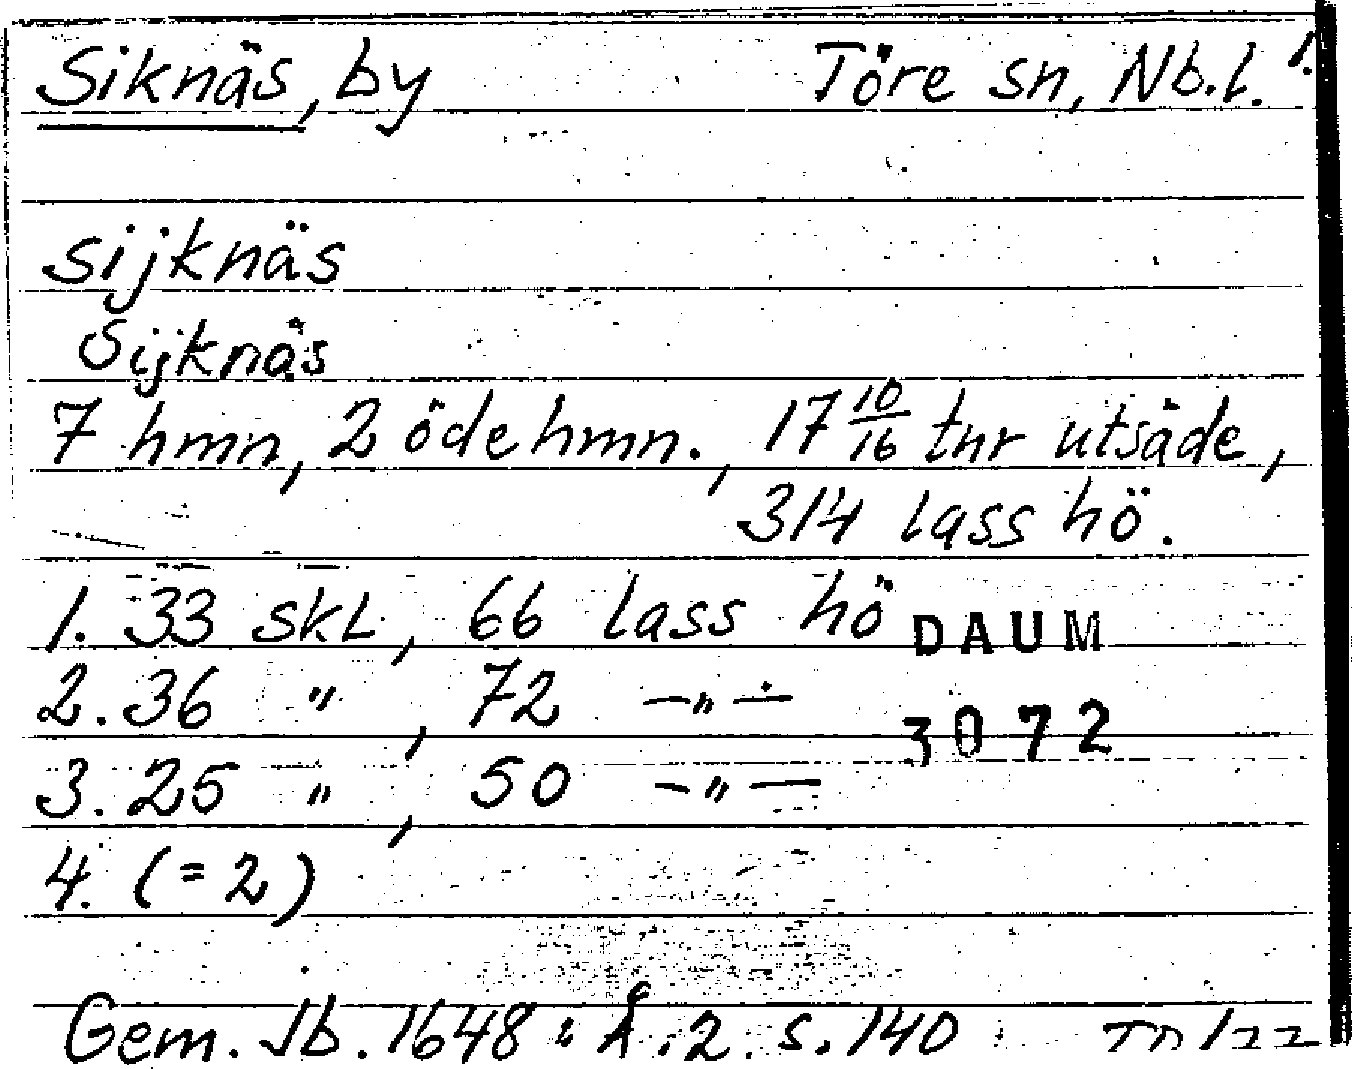 Siknäs, by Töre sn, Nb.l. 1.
sijknäs
Sijknäs
7 hmn, 2 ödehmn., 17 10/16 tnr utsäde,
314 lass hö.
1. 33 skl, 66 lass hö
DAUM
2. 36 " , 72 -"-
3072
3. 25 " , 50 -"-
4. (=2)
Gem. Jb. 1648: Å. 2. s. 140